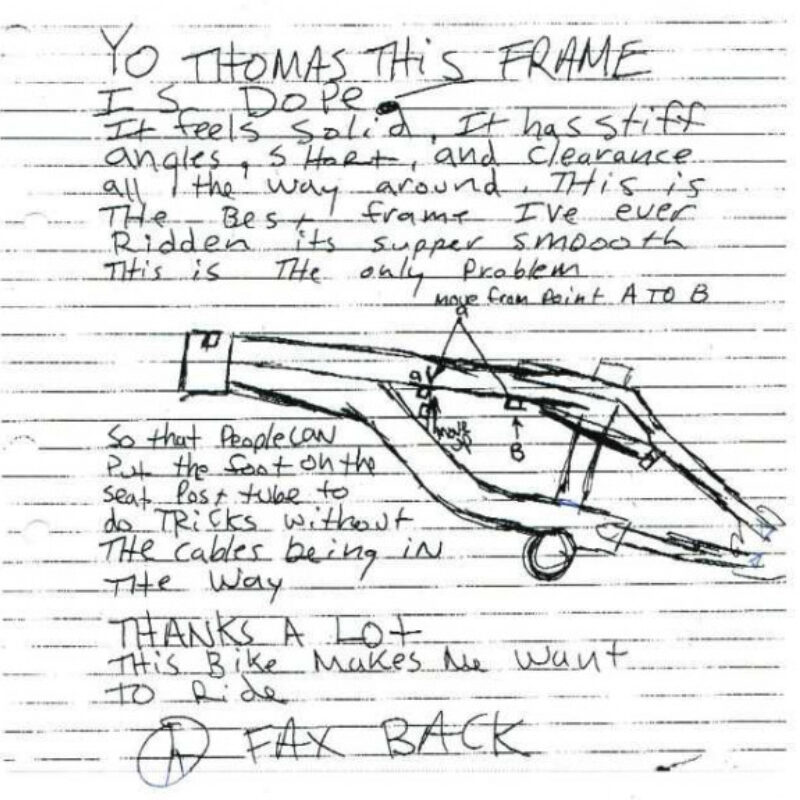 YO THOMAS THIS FRAME
IS DOPE.
It feels solid, It has stiff
angles, SHort, and clearance
all the way around. THis is
THe Best frame I've ever
Ridden its supper smoooth
THis is THe only Problem
move from Point A TO B
a
a
move
up
B
So that People can
Put the foot on the
seat Post tube to
do TRicks without
THe cables being in
THe way
THANKS A LOt
THis Bike Makes Me want
TO Ride
FAX BACK